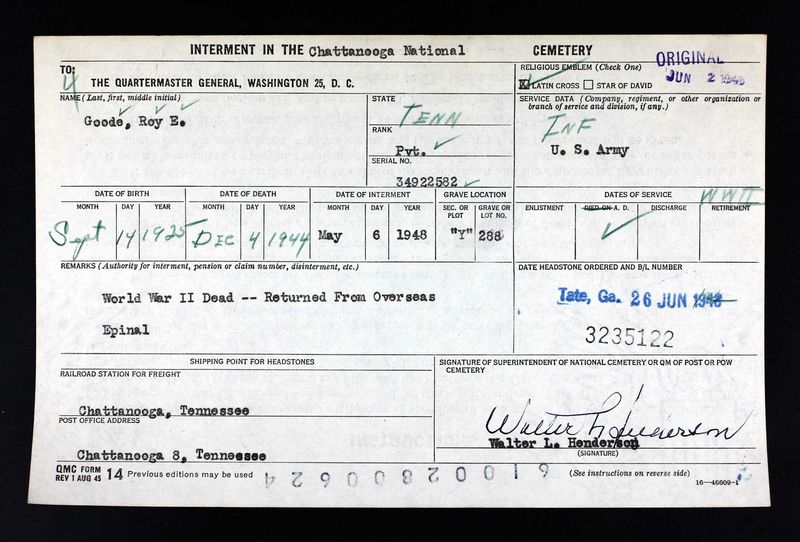 INTERMENT IN THE Chattanooga National CEMETERY
ORIGINAL
JUN 2 1948
TO:
4
THE QUARTERMASTER GENERAL, WASHINGTON 25, D. C.
RELIGIOUS EMBLEM (Check One)
X LATIN CROSS STAR OF DAVID
NAME (Last, first, middle initial)
Goode, Roy E.
STATE
TENN
RANK
Pvt.
SERIAL NO.
34922582
SERVICE DATA (Company, regiment, or other organization or branch of service and division, if any.)
INF
U. S. Army
DATE OF BIRTH DATE OF DEATH DATE OF INTERMENT GRAVE LOCATION DATES OF SERVICE WWII
MONTH DAY YEAR MONTH DAY YEAR MONTH DAY YEAR SEC. OR PLOT GRAVE OR LOT NO. ENLISTMENT DIED ON A. D. DISCHARGE RETIREMENT
Sept 14 1925 DEC 4 1944 May 6 1948 "Y" 288
REMARKS (Authority for interment, pension or claim number, disinterment, etc.)
World War II Dead -- Returned From Overseas
Epinal
DATE HEADSTONE ORDERED AND B/L NUMBER
Tate, Ga. 26 JUN 1948
3235122
SHIPPING POINT FOR HEADSTONES
RAILROAD STATION FOR FREIGHT
Chattanooga, Tennessee
POST OFFICE ADDRESS
Chattanooga 8, Tennessee
SIGNATURE OF SUPERINTENDENT OF NATIONAL CEMETERY OR QM OF POST OR POW CEMETERY
Walter L Henderson
Walter L. Henderson
(SIGNATURE)
QMC FORM
REV 1 AUG 45 14 Previous editions may be used
(See instructions on reverse side)
16—46609-1